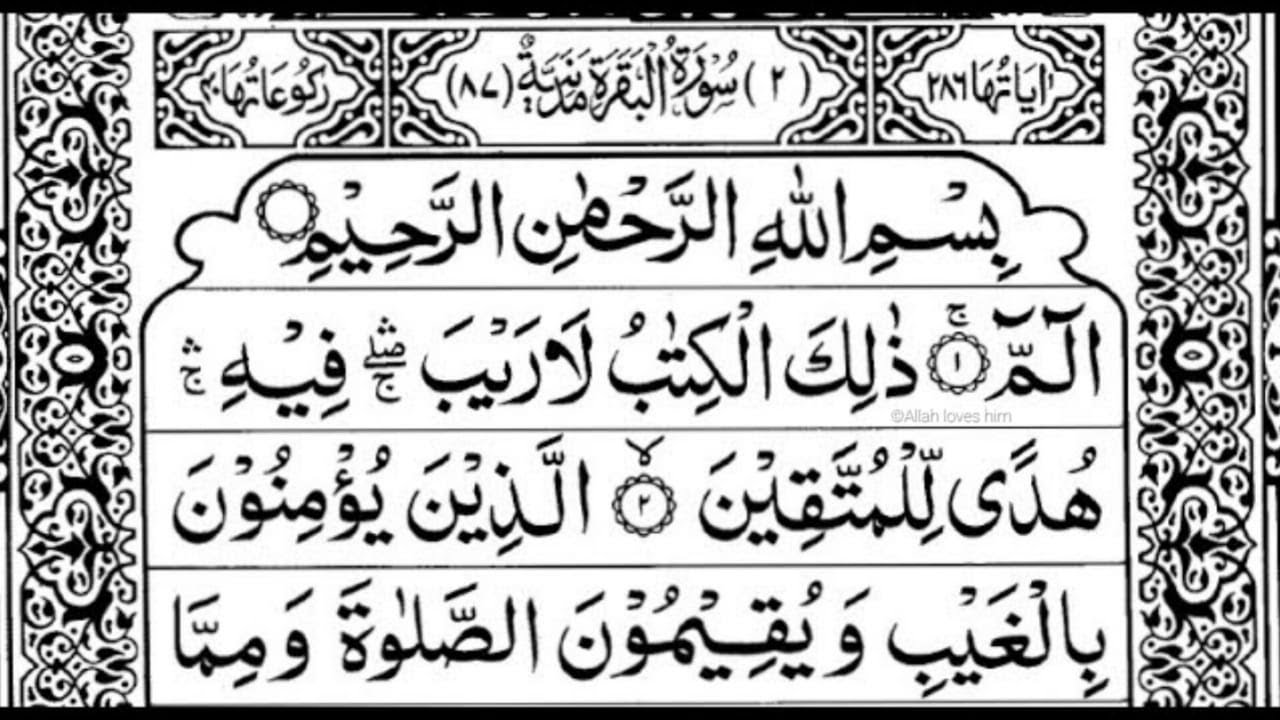 اٰيَاتُهَا ٢٨٦ (٢) سُوْرَةُ الْبَقَرَةِ مَدَنِيَّةٌ (٨٧) رُكُوْعَاتُهَا ٤٠
بِسْمِ اللّٰهِ الرَّحْمٰنِ الرَّحِيْمِ
الٓـمّٓ ۚ ١ ذٰلِكَ الْكِتٰبُ لَا رَيْبَ ۛۖۚ فِيْهِ ۛۚ
©Allah loves him
هُدًى لِّلْمُتَّقِيْنَ ۙ ٢ الَّذِيْنَ يُؤْمِنُوْنَ
بِالْغَيْبِ وَ يُقِيْمُوْنَ الصَّلٰوةَ وَ مِمَّا